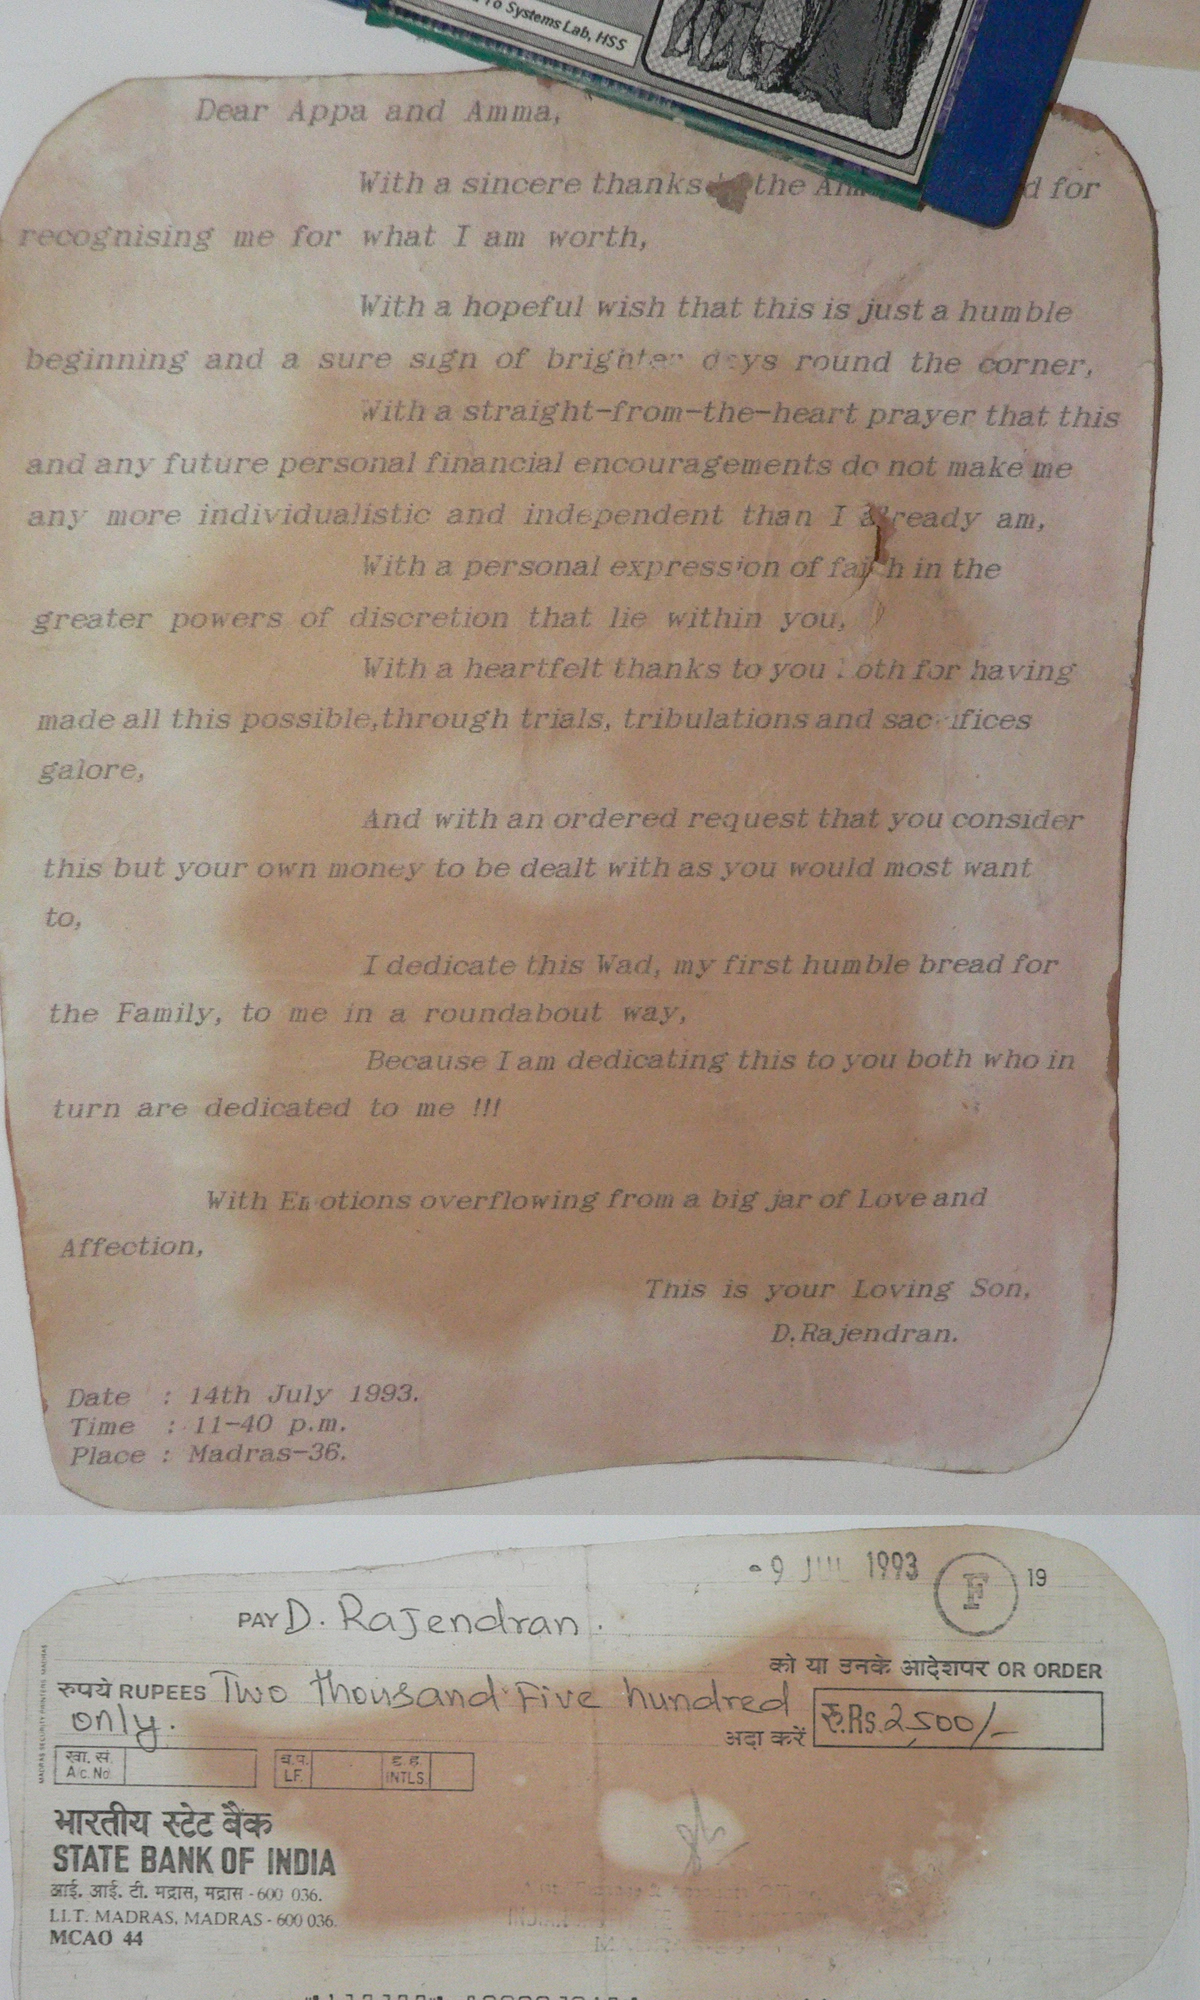 To Systems Lab, HSS
Dear Appa and Amma,
With a sincere thanks the d for
recognising me for what I am worth,
With a hopeful wish that this is just a humble
beginning and a sure sign of brighter days round the corner,
With a straight-from-the-heart prayer that this
and any future personal financial encouragements do not make me
any more individualistic and independent than I already am,
With a personal expression of faith in the
greater powers of discretion that lie within you,
With a heartfelt thanks to you both for having
made all this possible,through trials, tribulations and sacrifices
galore,
And with an ordered request that you consider
this but your own money to be dealt with as you would most want
to,
I dedicate this Wad, my first humble bread for
the Family, to me in a roundabout way,
Because I am dedicating this to you both who in
turn are dedicated to me !!!
With Emotions overflowing from a big jar of Love and
Affection,
This is your Loving Son,
D.Rajendran.
Date : 14th July 1993.
Time : 11-40 p.m.
Place : Madras-36.
-9 JUL 1993 F 19
PAY D. Rajendran.
को या उनके आदेशपर OR ORDER
रुपये RUPEES Two thousand Five hundred
only.
अदा करें रु.Rs.2,500/-
खा. सं. ब.पृ. ह.ह.
A/c. No. LF. INTLS.
MADRAS SECURITY PRINTERS MADRAS
भारतीय स्टेट बैंक
STATE BANK OF INDIA
आई. आई. टी. मद्रास, मद्रास - 600 036.
I.I.T. MADRAS, MADRAS - 600 036.
MCAO 44